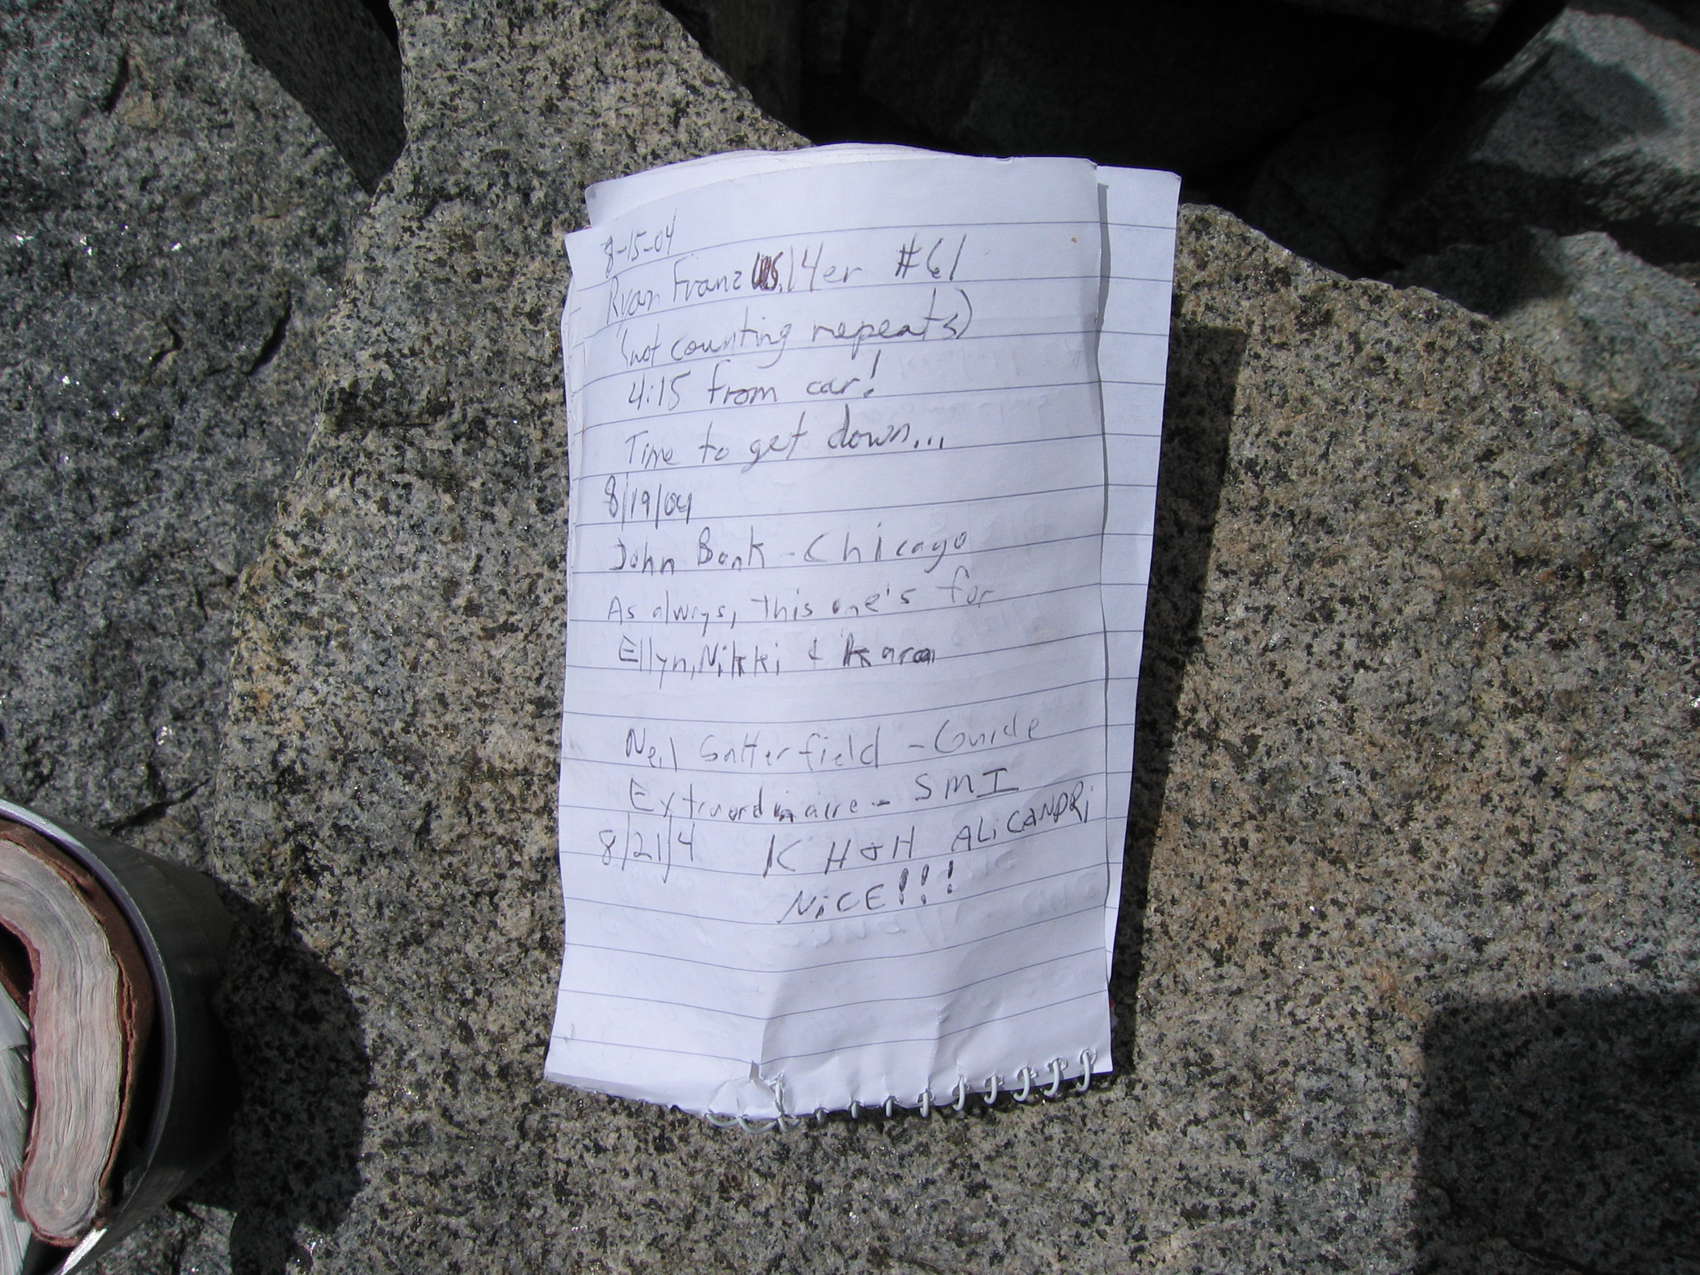 8-15-04
Ryan Franz US 14er #61
(not counting repeats)
4:15 from car!
Time to get down...
8/19/04
John Bank - Chicago
As always, this one's for
Ellyn, Nikki & Kara
Neil Satterfield - Guide
Extraordinaire - SMI
8/21/4 K H & H ALiCANDRi
NiCE!!!